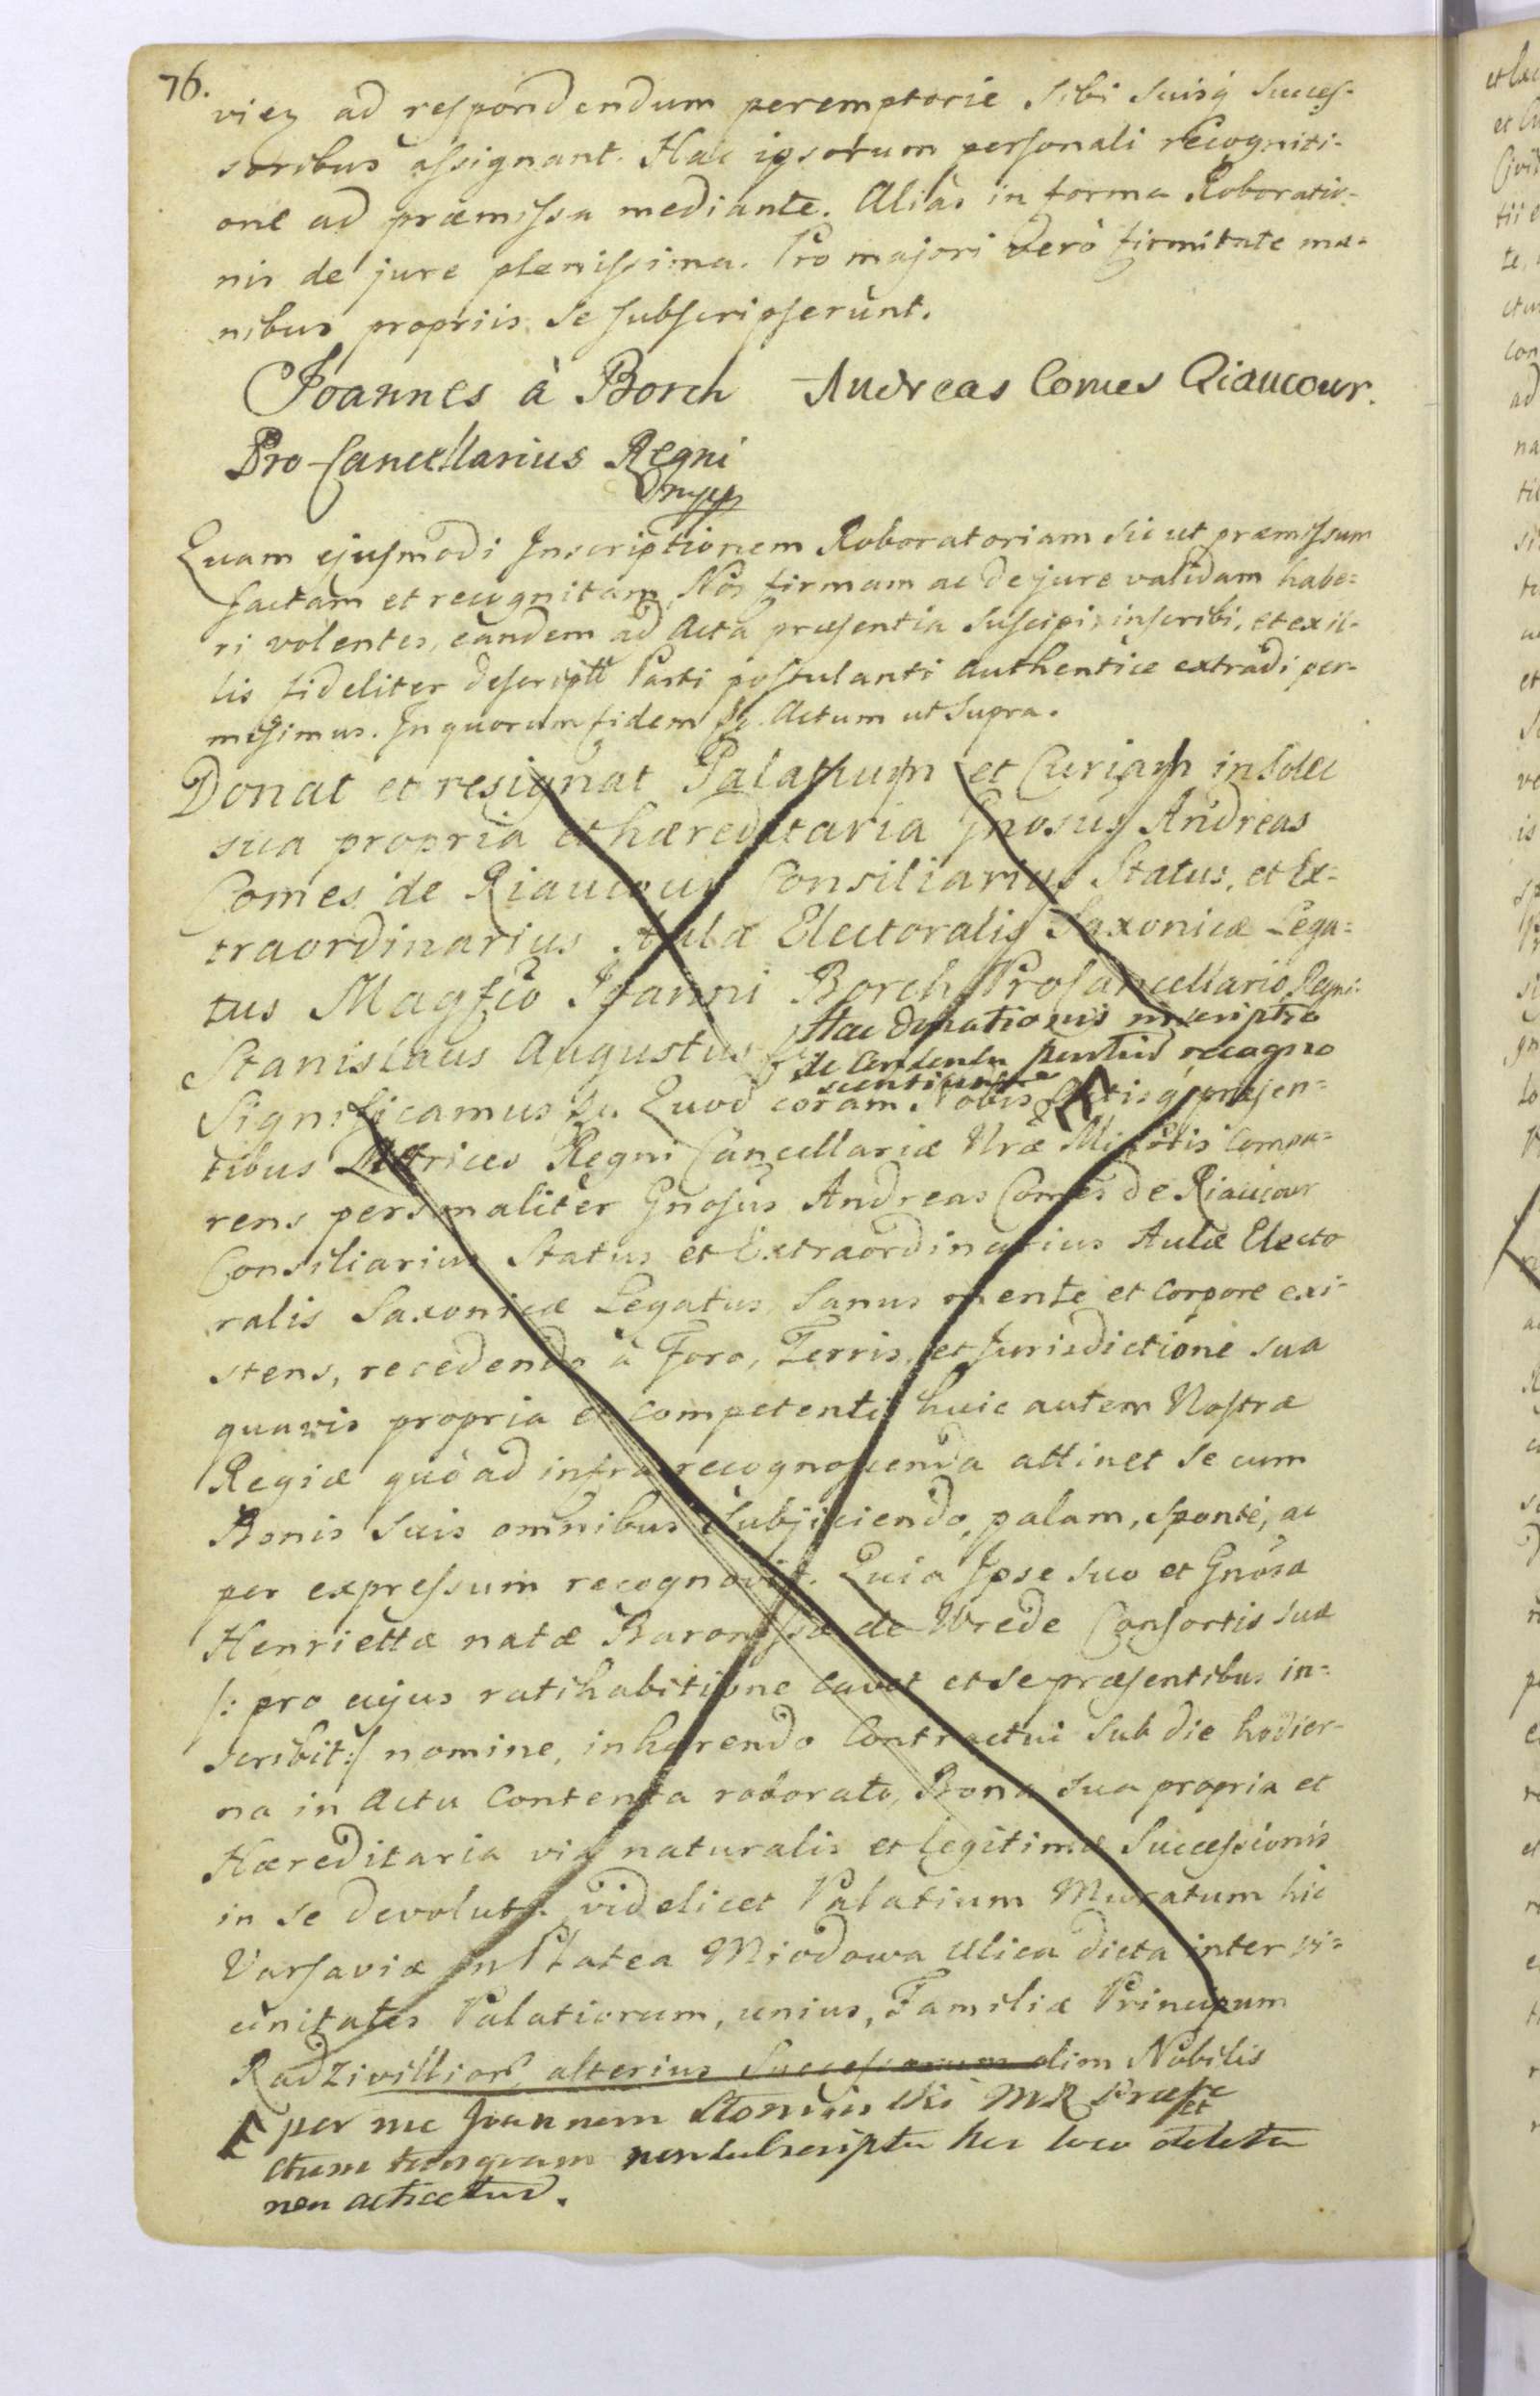 76.
viez ad respondendum peremptorie sibi suisq̃ succes-
soribus assignant. Hac ipsorum personali recogniti-
one ad præmissa mediante. Alias in forma Roboratio-
nis de jure plenissima. Pro majori verò firmitate ma-
nibus propriis se subscripserunt.
Joannes à Borch Andreas Comes Riaucour.
Pro-Cancellarius Regni
mpp
Quam ejusmodi Inscriptionem Roboratoriam sicut præmissum
factam et recognitam, Nos firmam ac de jure validam habe=
ri volentes, eandem ad Acta præsentia suscipi, inscribi, et ex il-
lis fideliter descriptã Parti postulanti authentice extradi per-
misimus. In quorum fidem &. Actum ut Supra.
Donat et resignat Palatium et Curiam in Solec
sua propria et hæreditaria Gnosus Andreas
Comes de Riaucour Consiliarius Status, et Ex-
traordinarius Aulæ Electoralis Saxonicæ Lega=
tus Magfco Joanni Borch ProCancellario Regni.
Hac donationis inscriptio
Stanislaus Augustus &
de Consensu partium recogno
scentium
Significamus &. Quod coram Nobis Actisq̃ præsen=
tibus Metrices Regni Cancellariæ Nræ Mitortis Compa=
rens personaliter Gnosus Andreas Comes de Riaucour
Consiliarius Status et Extraordinarius Aulæ Electo
ralis Saxonicæ Legatus, sanus mente et corpore exi-
stens, recedendo à Foro, Terris, et Jurisdictione sua
quavis propria et competenti huic autem Nostræ
Regiæ quò ad infra recognoscenda attinet se cum
Bonis suis omnibus subjiciendo, palam, sponte, ac
per expressum recognovit. Quia Ipse suo et Gnosa
Henriettæ natæ Baronissæ de Wrede Consortis suæ
/: pro cujus ratihabitione cavet et se præsentibus in=
scribit :/ nomine, inhærendo Contractui sub die hodier-
na in Actu Contenta roborato, Bona sua propria et
Hæreditaria via naturalis et legitimæ Successionis
in se devoluta videlicet Palatium Muratum hic
Varsaviæ in Platea Miodowa Ulica dicta inter vi=
cinitates Palatiorum, unius, Familiæ Principum
Radzivillior̃, alterius Successorum olim Nobilis
per me Joannem MR Præfe
ctum tanquam non subscripta hes loco deleta et
non acticetur.